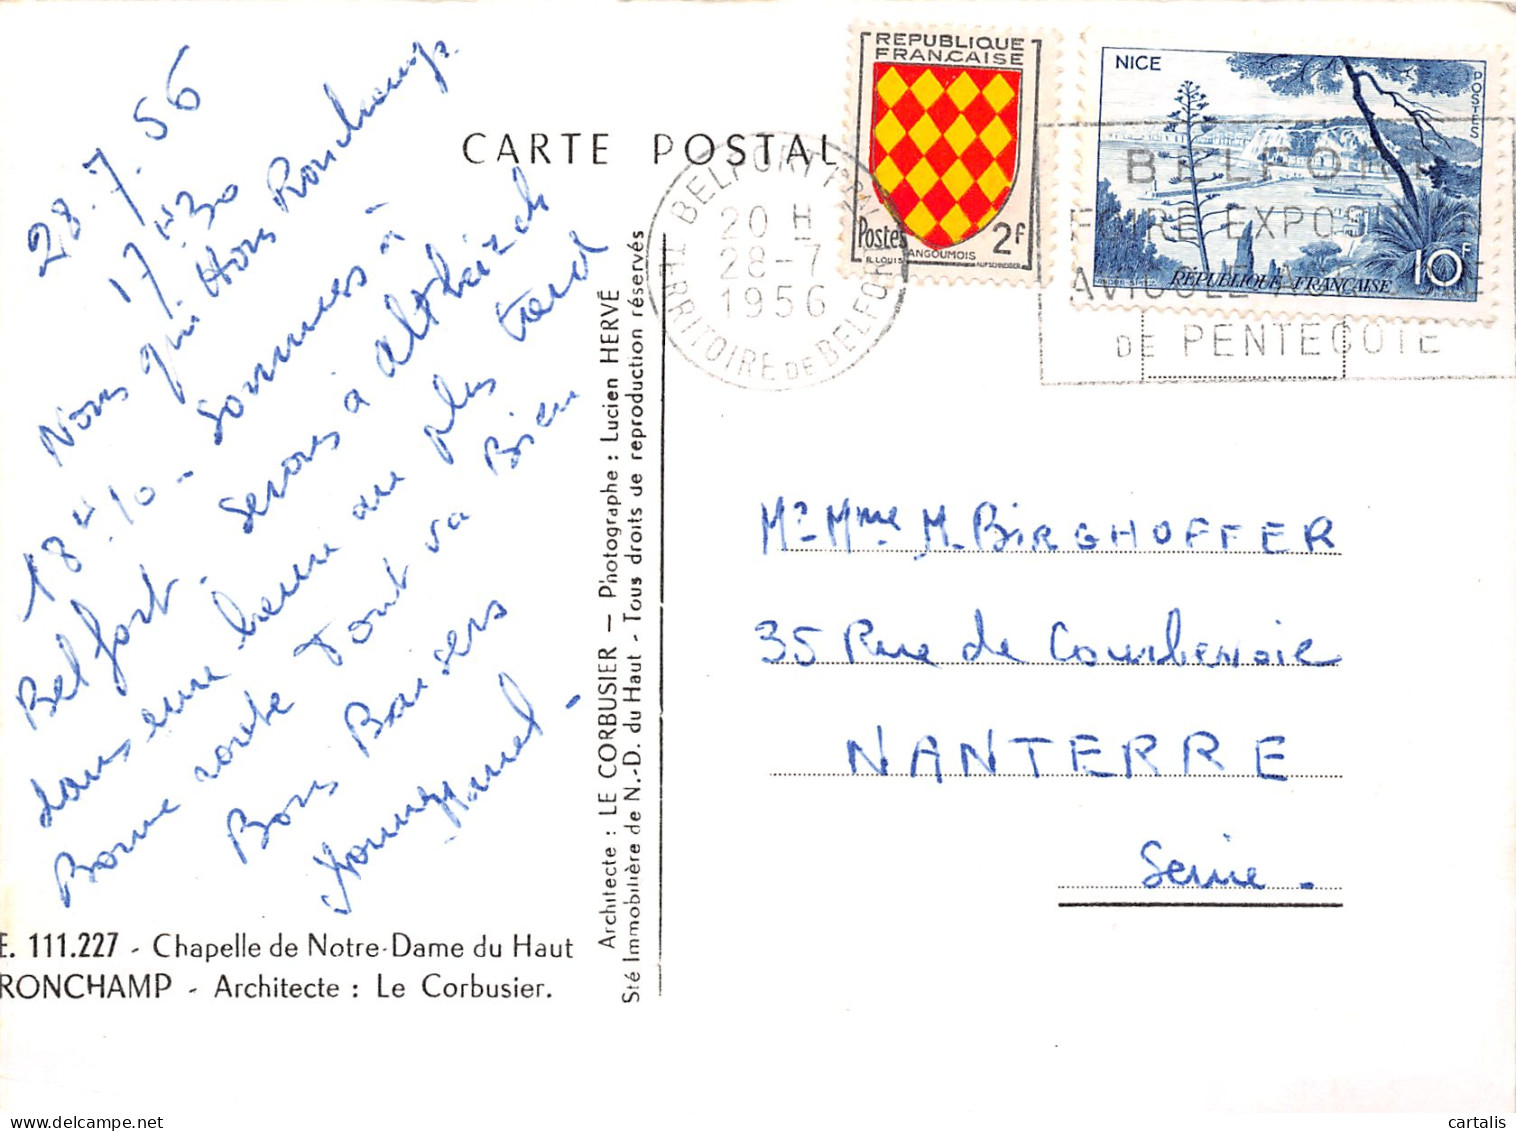 28.7.56
17H30
Nous quittons Ronchamp
18H10 - Sommes à
Belfort. Serons à Altkirch
dans une heure au plus tard
Bonne route Tout va Bien
Bons Baisers
Marcel -
E. 111.227 - Chapelle de Notre-Dame du Haut
RONCHAMP - Architecte : Le Corbusier.
Architecte : LE CORBUSIER — Photographe : Lucien HERVÉ
Sté Immobilière de N.-D. du Haut - Tous droits de reproduction réservés
CARTE POSTAL
BELFORT PAL
20 H
28-7
1956
TERRITOIRE DE BELFORT
REPUBLIQUE
FRANÇAISE
Postes
2F
ANGOUMOIS
R. LOUIS
AUFSCHNEIDER
NICE
POSTES
10F
RÉPUBLIQUE FRANÇAISE
BELFORT
FOIRE EXPOSITION
DE PENTECOTE
Mr Mme M. BIRGHOFFER
35 Rue de Courbevoie
NANTERRE
Seine.
cartalis